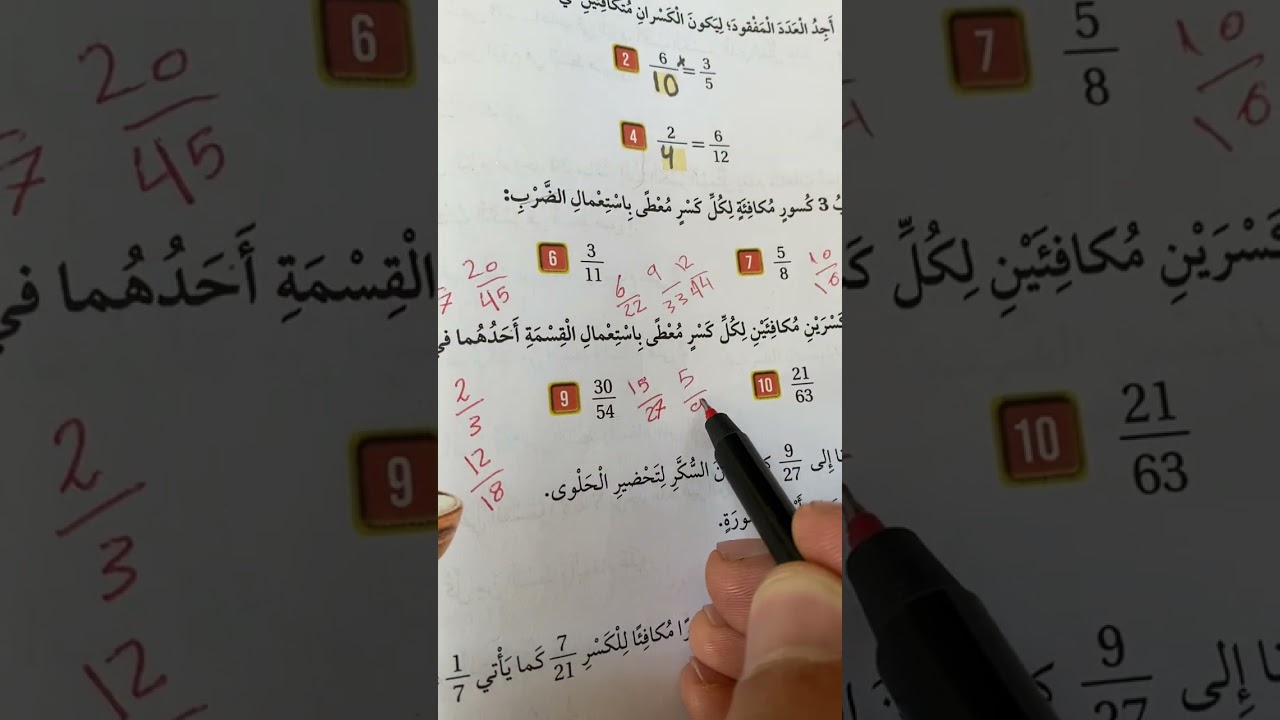 أَجِدُ الْعَدَدَ الْمَفْقودَ؛ لِيَكونَ الْكَسْرانِ مُتَكافِئَيْنِ في
2 6/10 = 3/5
4 2/4 = 6/12
3 كُسورٍ مُكافِئَةٍ لِكُلِّ كَسْرٍ مُعْطًى بِاسْتِعْمالِ الضَّرْبِ:
6 3/11 6/22 9/33 12/44 7 5/8 10/16
20/45
كَسْرَيْنِ مُكافِئَيْنِ لِكُلِّ كَسْرٍ مُعْطًى بِاسْتِعْمالِ الْقِسْمَةِ أَحَدُهُما في
2/3 9 30/54 15/27 5 10 21/63
12/18
إِلى 9/27 السُّكَّرِ لِتَحْضيرِ الْحَلْوى.
مُكافِئًا لِلْكَسْرِ 7/21 كَما يَأْتي 1/7